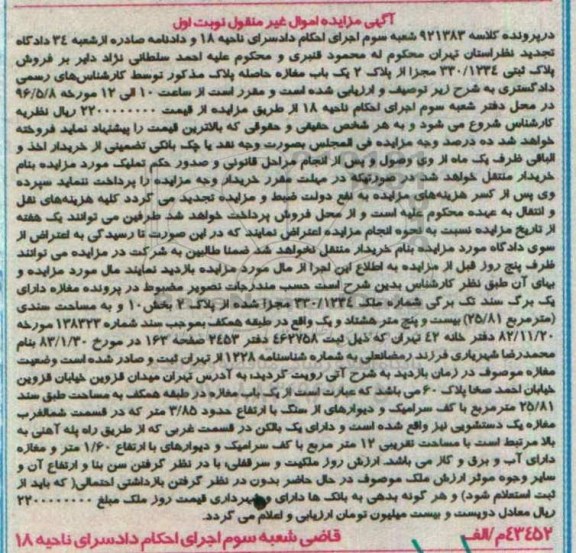 آگهی مزایده اموال غیر منقول نوبت اول
درپرونده کلاسه ۹۲۱۳۸۳ شعبه سوم اجرای احکام دادسرای ناحیه ۱۸ و دادنامه صادره ازشعبه ۳۴ دادگاه
تجدید نظراستان تهران محکوم له محمود قنبری و محکوم علیه احمد سلطانی نژاد دایر بر فروش
پلاک ثبتی ۳۳۰/۱۲۳۴ مجزا از پلاک ۲ یک باب مغازه حاصله پلاک مذکور توسط کارشناس‌های رسمی
دادگستری به شرح زیر توصیف و ارزیابی شده است و مقرر است از ساعت ۱۰ الی ۱۲ مورخه ۹۶/۵/۸
در محل دفتر شعبه سوم اجرای احکام ناحیه ۱۸ از طریق مزایده از قیمت ۲۲۰۰۰۰۰۰۰۰ ریال نظریه
کارشناس شروع می شود و به هر شخص حقیقی و حقوقی که بالاترین قیمت را پیشنهاد نماید فروخته
خواهد شد ده درصد وجه مزایده فی المجلس بصورت وجه نقد یا چک بانکی تضمینی از خریدار اخذ و
الباقی ظرف یک ماه از وی وصول و پس از انجام مراحل قانونی و صدور حکم تملیک مورد مزایده بنام
خریدار منتقل خواهد شد در صورتیکه در مهلت مقرر خریدار وجه مزایده را پرداخت ننماید سپرده
وی پس از کسر هزینه‌های مزایده به نفع دولت ضبط و مزایده تجدید می گردد کلیه هزینه‌های نقل
و انتقال به عهده محکوم علیه است و از محل فروش پرداخت خواهد شد طرفین می توانند یک هفته
از تاریخ مزایده نسبت به نحوه انجام مزایده اعتراض نمایند که در این صورت تا رسیدگی به اعتراض از
سوی دادگاه مورد مزایده بنام خریدار منتقل نخواهد شد ضمنا طالبین به شرکت در مزایده می توانند
ظرف پنج روز قبل از مزایده به اطلاع این اجرا از مال مورد مزایده بازدید نمایند مال مورد مزایده و
بهای آن طبق نظر کارشناس بدین شرح است حسب مندرجات تصویر مضبوط در پرونده مغازه دارای
یک برگ سند تک برگی شماره ملک ۳۳۰/۱۲۳۴ مجزا شده از پلاک ۲ بخش ۱۰ و به مساحت سندی
(مترمربع ۲۵/۸۱) بیست و پنج متر هشتاد و یک واقع در طبقه همکف بموجب سند شماره ۱۳۸۳۲۳ مورخه
۸۲/۱۱/۲۰ دفتر خانه ۴۲ تهران که ذیل ثبت ۴۶۲۷۵۸ دفتر ۲۴۵۳ صفحه ۱۶۳ در مورخ ۸۳/۱/۳۰ بنام
محمدرضا شهریاری فرزند رمضانعلی به شماره شناسنامه ۱۳۲۸ از تهران ثبت و صادر شده است وضعیت
مغازه موصوف در زمان بازدید به شرح آتی رویت گردید به آدرس تهران میدان قزوین خیابان قزوین
خیابان احمد صخا پلاک ۶۰ می باشد که عبارت است از یک باب مغازه در طبقه همکف به مساحت طبق سند
۲۵/۸۱ مترمربع با کف سرامیک و دیوارهای از سنگ با ارتفاع حدود ۳/۸۵ متر که در قسمت شمالغرب
مغازه یک دستشویی نیز واقع شده است و دارای یک بالکن در قسمت غربی که از طریق راه پله آهنی به
بالا مرتبط است با مساحت تقریبی ۱۲ متر مربع با کف سرامیک و دیوارهای با ارتفاع ۱/۶۰ متر و مغازه
دارای آب و برق و گاز می باشد. ارزش روز ملکیت و سرقفلی، با در نظر گرفتن سن بنا و ارتفاع آن و
سایر وجوه موثر ارزش ملک موصوف در حال حاضر بدون در نظر گرفتن بازداشتی احتمالی( که باید از
ثبت استعلام شود) و هر گونه بدهی به بانک ها دارای و شهرداری قیمت روز ملک مبلغ ۲۲۰۰۰۰۰۰۰۰
ریال معادل دویست و بیست میلیون تومان ارزیابی و اعلام می گردد.
۴۳۴۵۲/م/الف قاضی شعبه سوم اجرای احکام دادسرای ناحیه ۱۸